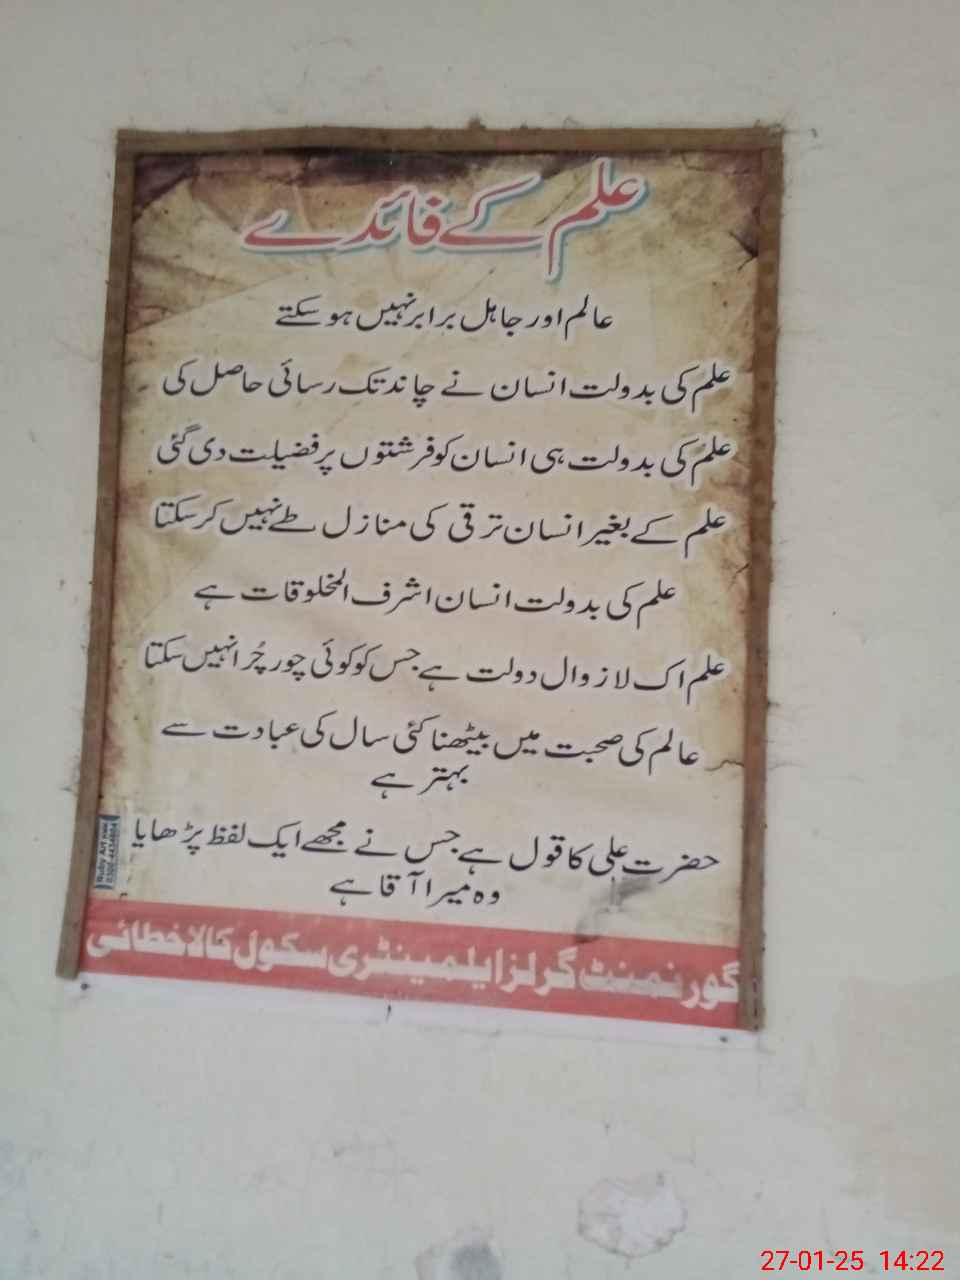 علم کے فائدے
عالم اور جاہل برابر نہیں ہو سکتے
علم کی بدولت انسان نے چاند تک رسائی حاصل کی
علم کی بدولت ہی انسان کو فرشتوں پر فضیلت دی گئی
علم کے بغیر انسان ترقی کی منازل طے نہیں کر سکتا
علم کی بدولت انسان اشرف المخلوقات ہے
علم اک لازوال دولت ہے جس کو کوئی چور چُرا نہیں سکتا
عالم کی صحبت میں بیٹھنا کئی سال کی عبادت سے
بہتر ہے
حضرت علی کا قول ہے جس نے مجھے ایک لفظ پڑھایا
وہ میرا آقا ہے
گورنمنٹ گرلز ایلمینٹری سکول کالاخطائی
27-01-25 14:22